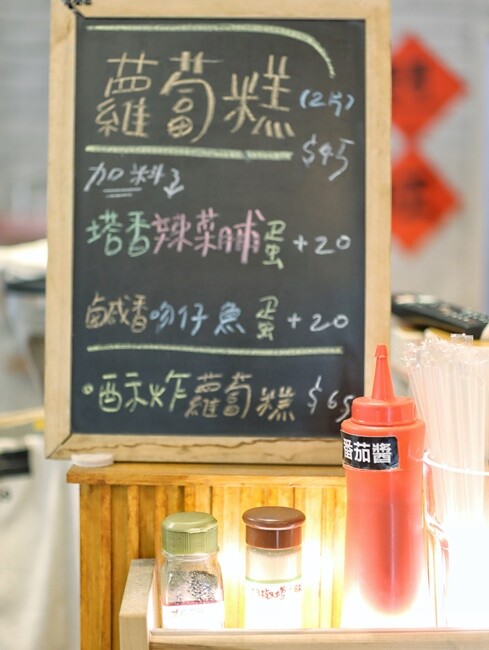 蘿蔔糕(2片)
$45
加料↓
塔香辣菜脯蛋+20
鹹香吻仔魚蛋+20
•酥炸蘿蔔糕 $65
番茄醬